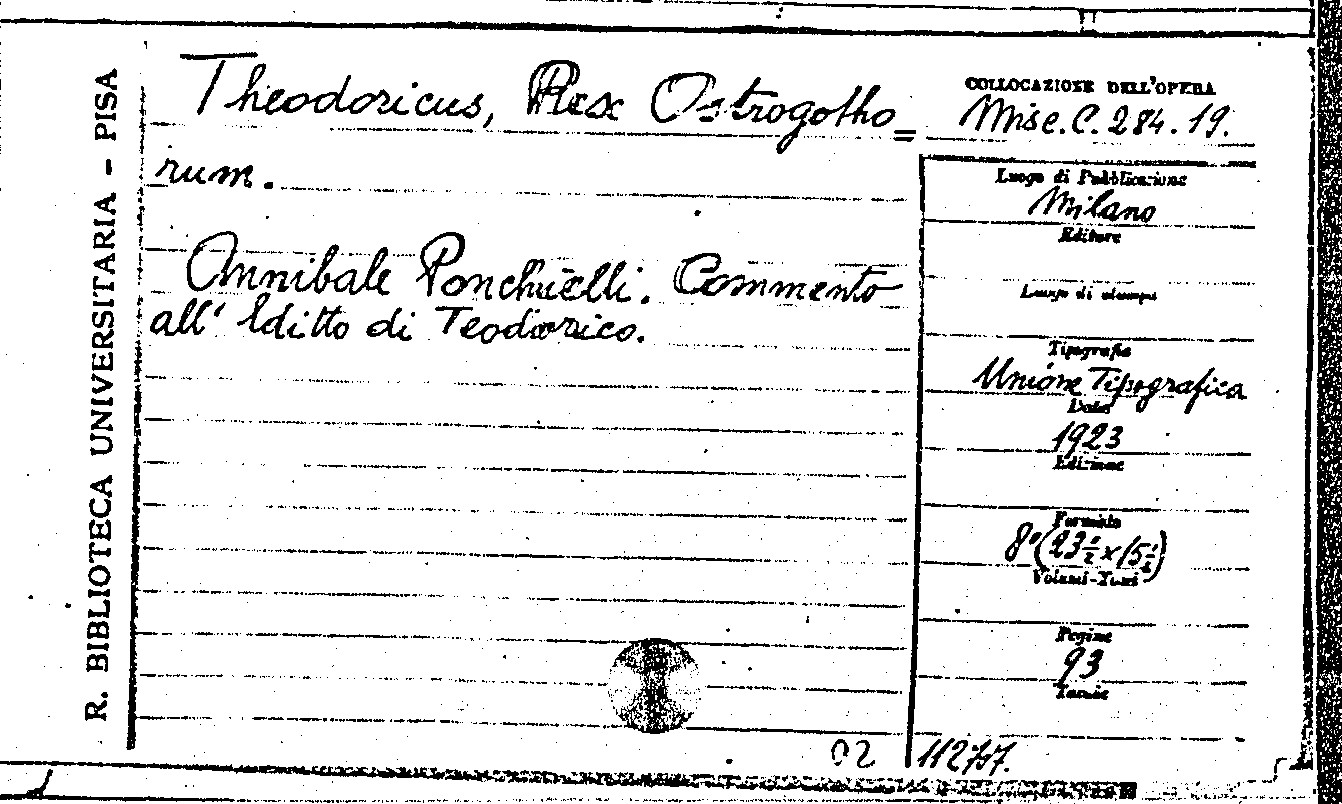 R. BIBLIOTECA UNIVERSITARIA - PISA
Theodoricus, Rex Ostrogotho=
rum.
Annibale Ponchielli. Commento
all' Editto di Teodorico.
COLLOCAZIONE DELL'OPERA
Misc. C. 284. 19.
Luogo di Pubblicazione
Milano
Editore
Luogo di stampa
Tipografia
Unione Tipografica
Data
1923
Edizione
Formato
8° (23½ x 15½)
Volumi-Tomi
Pagine
93
Tavole
02